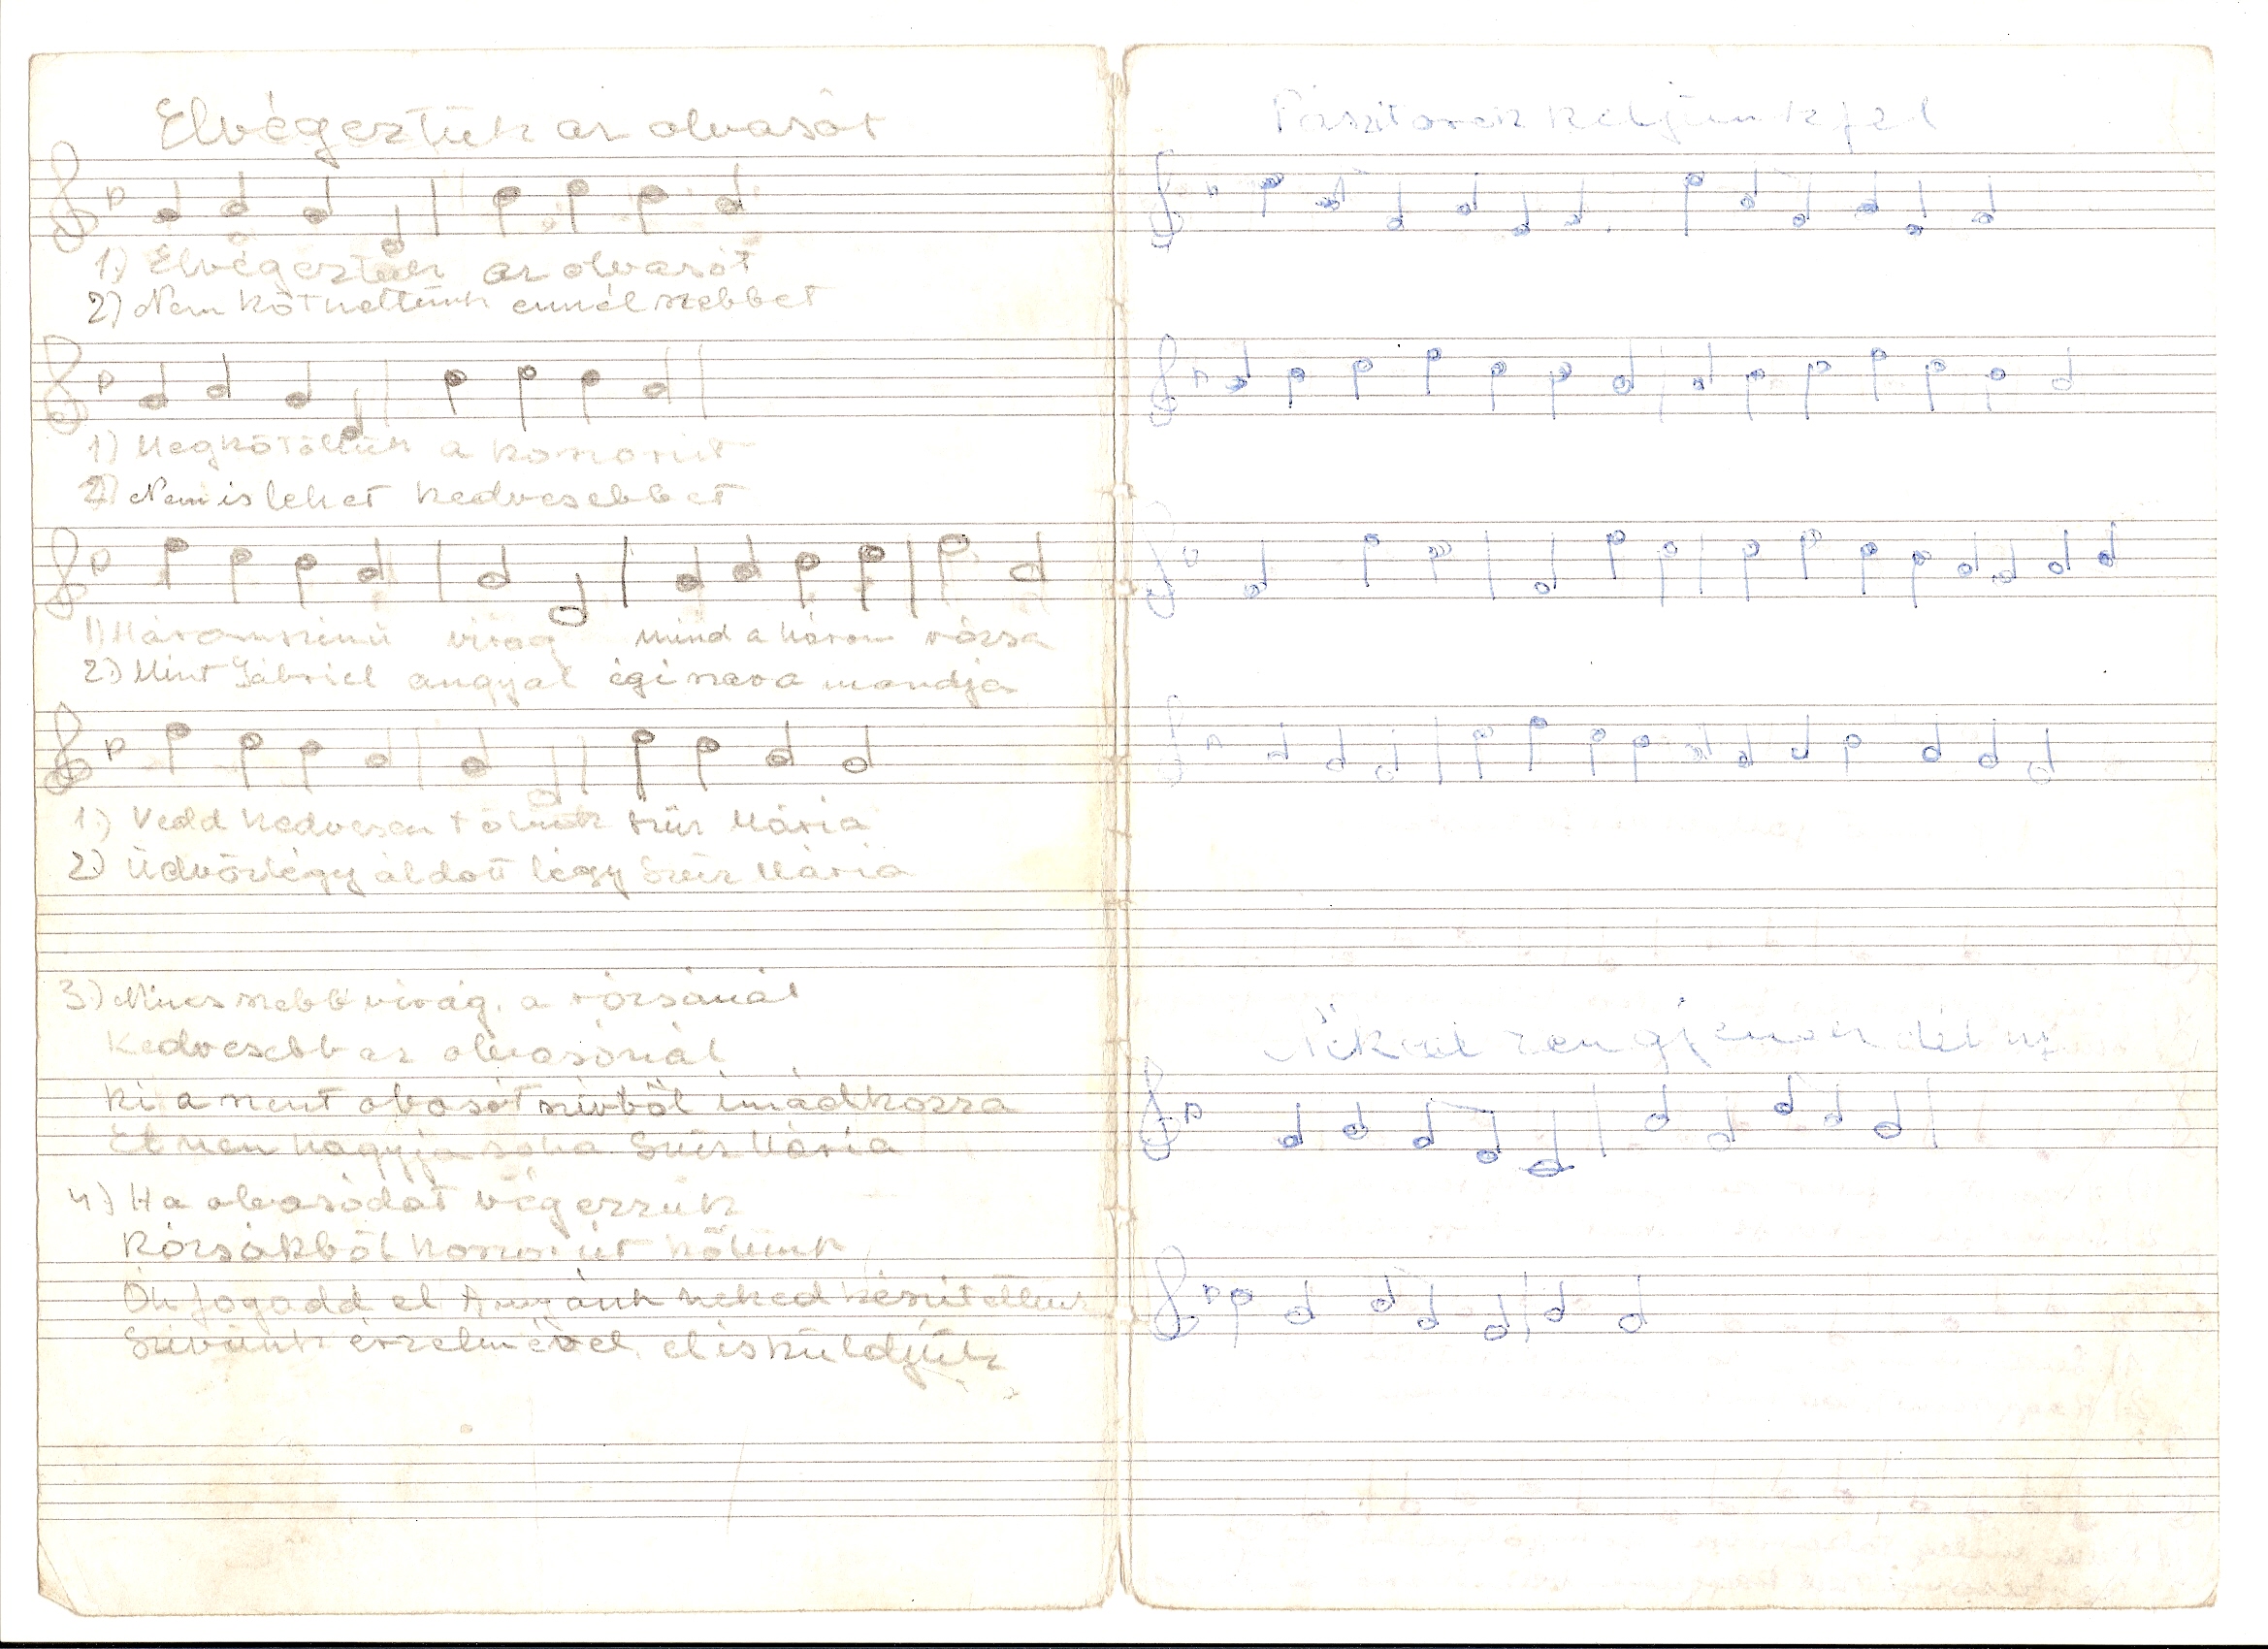 Elvégeztük az olvasót
1.) Elvégeztük az olvasót
2.) Nem köthettünk ennél szebbet
1.) Megkötöttük a koszorút
2) Nem is lehet kedvesebbet
1) Háromszinü virág mind a három rózsa
2.) Mint Gábriel angyal égi szava mondja
1.) Vedd kedvesen tölünk szüz Mária
2.) Üdvözlégy áldott légy Szüz Mária
3.) Nincs szebb virág, a rózsánál
Kedvesebb az olvasónál
Ki a szent olvasót szivböl imádkozza
El nem hagyja soha Szüz Mária
4.) Ha olvasódat végezzük
Rózsákból koszorút kötünk
Óh fogadd el Anyánk neked készitettük
Szivünk érzelmével el is küldjük
Pásztorok keljünk fel